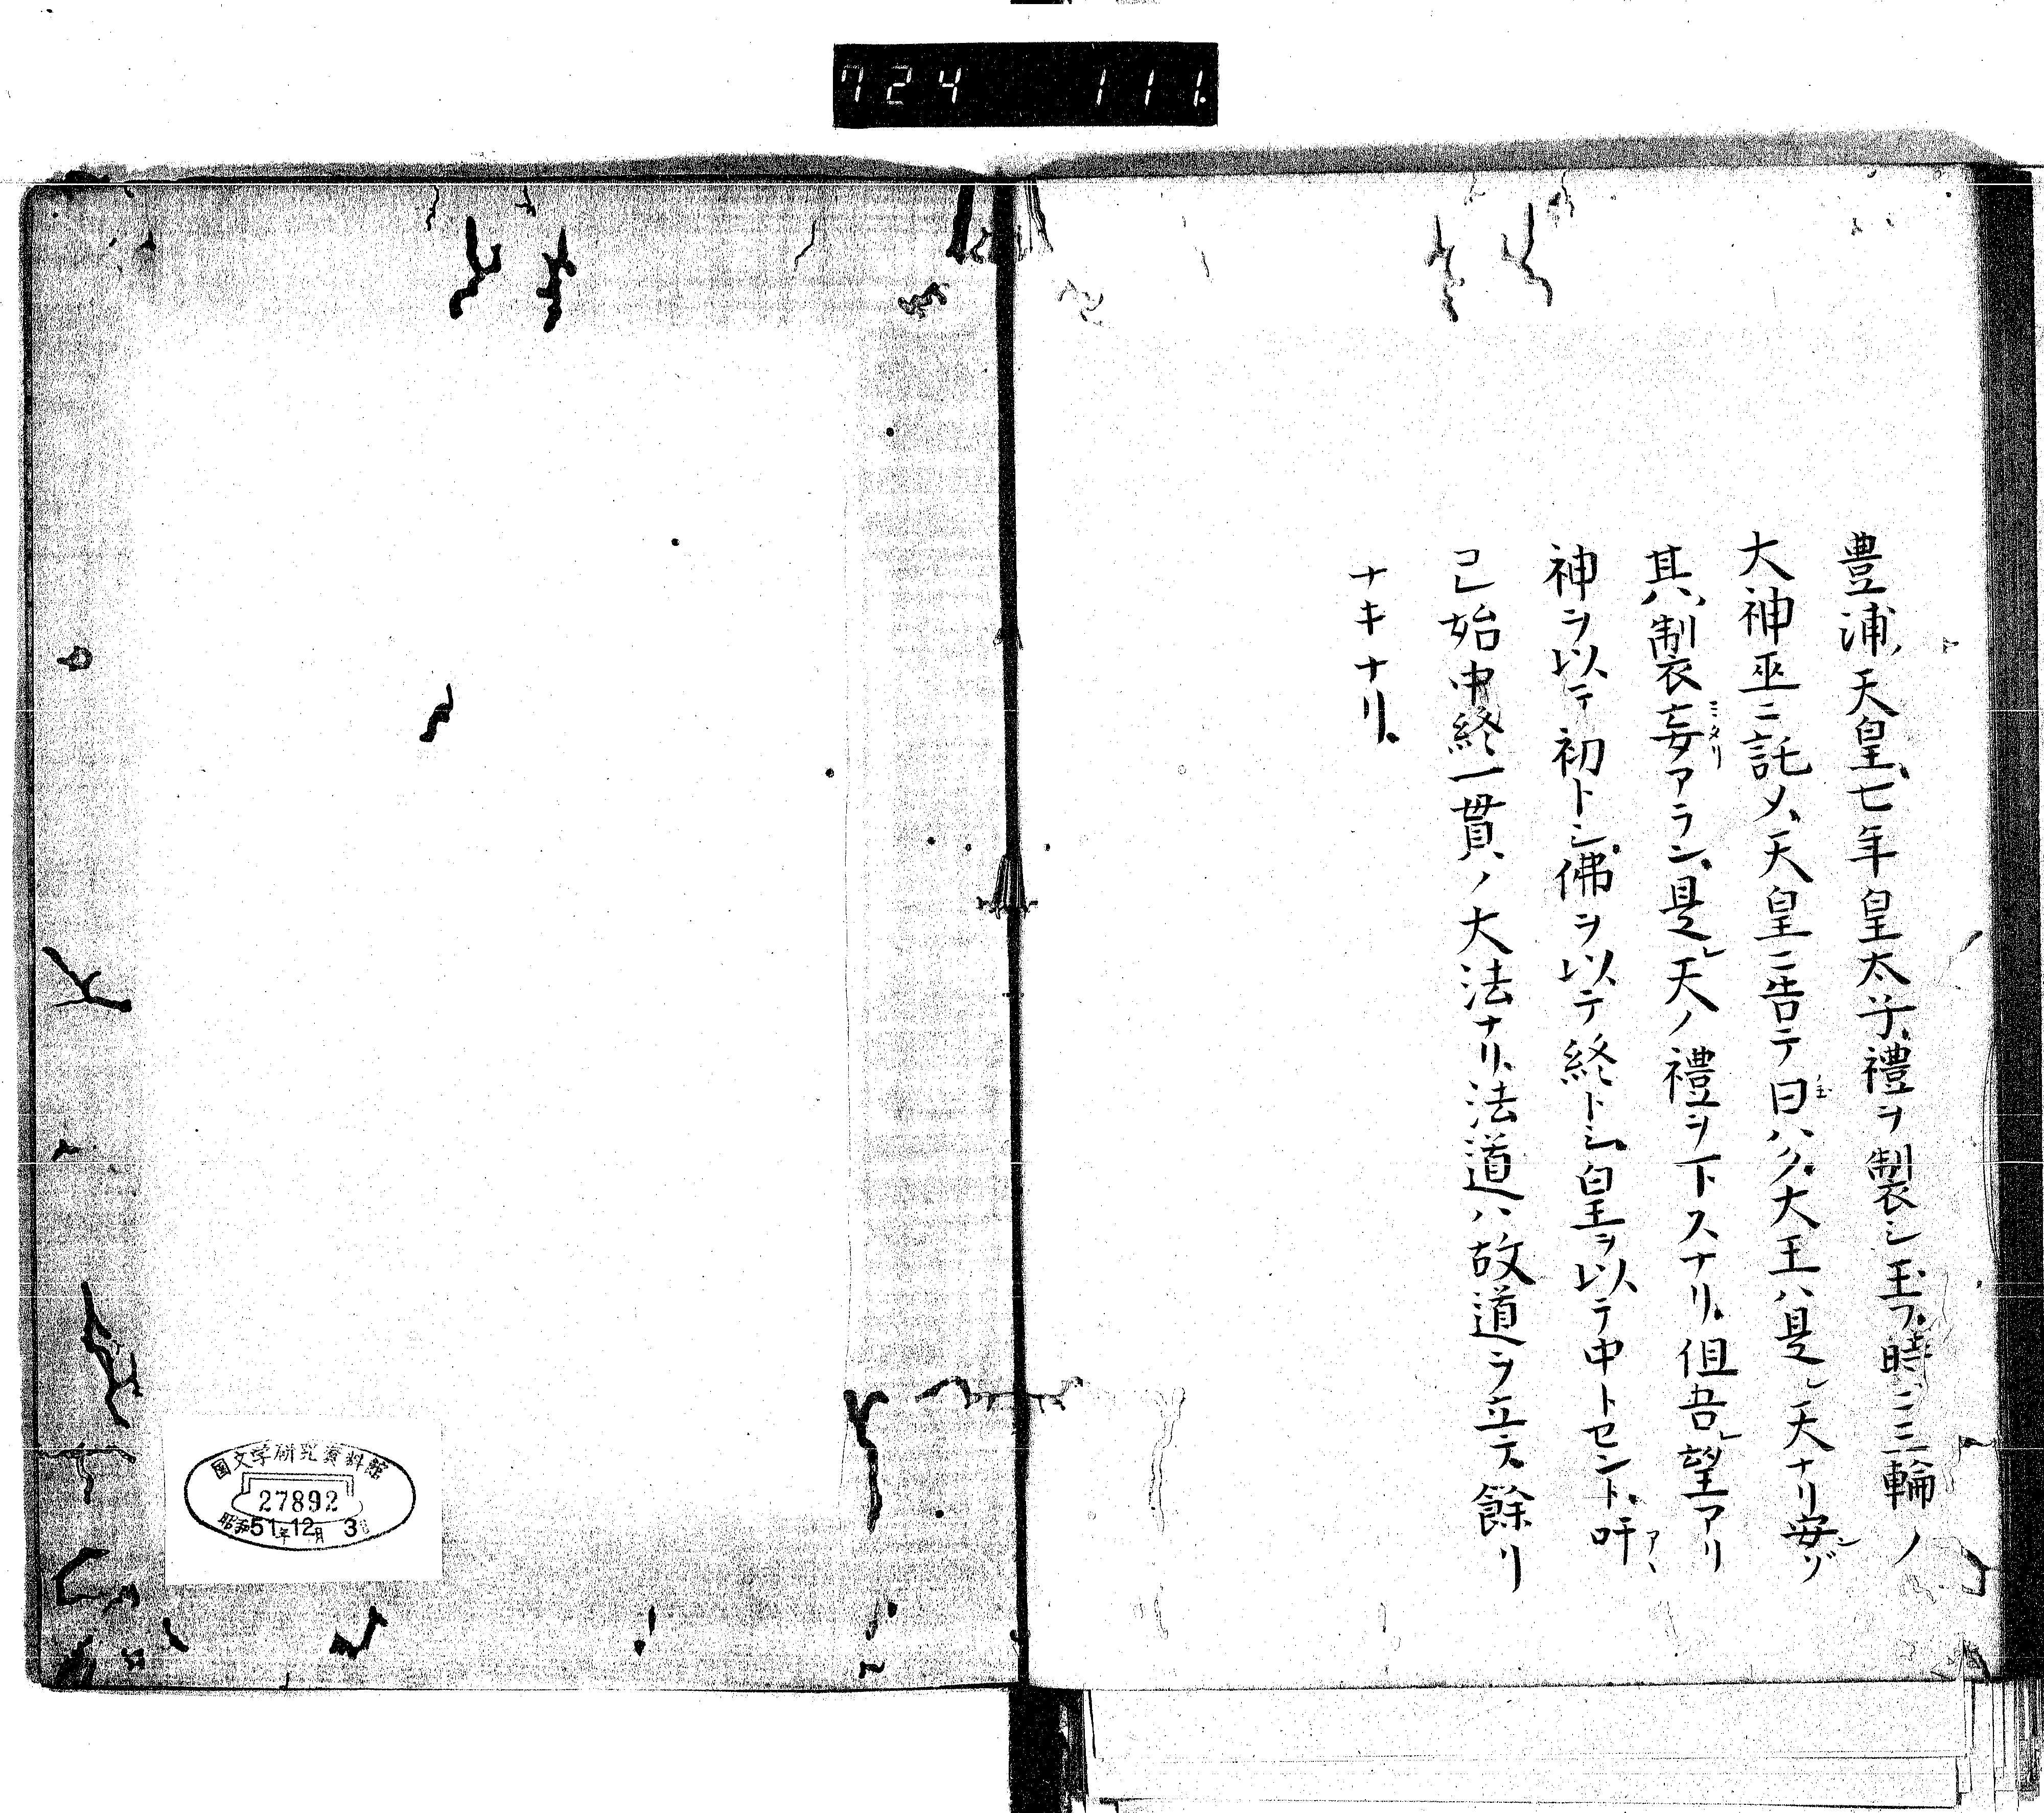 724 111.
豊浦、天皇、七年皇太子、禮ヲ製シ玉フ。時ニ三輪ノ
大神巫ニ託〆、天皇ニ告テ曰ハク。大王ハ是レ天ナリ安ンゾ
其ノ製衣妄ミタリアラン。是レ天ノ禮ヲ下スナリ。但吾レ望アリ
神ヲ以テ初トシ。佛ヲ以テ終トシ。皇ヲ以テ中トセント。吁アヽ
己レ始中終一貫ノ大法ナリ。法道ハ故道ヲ立テ。餘リ
ナキナリ。
国文学研究資料館
27892
昭和51年12月3日